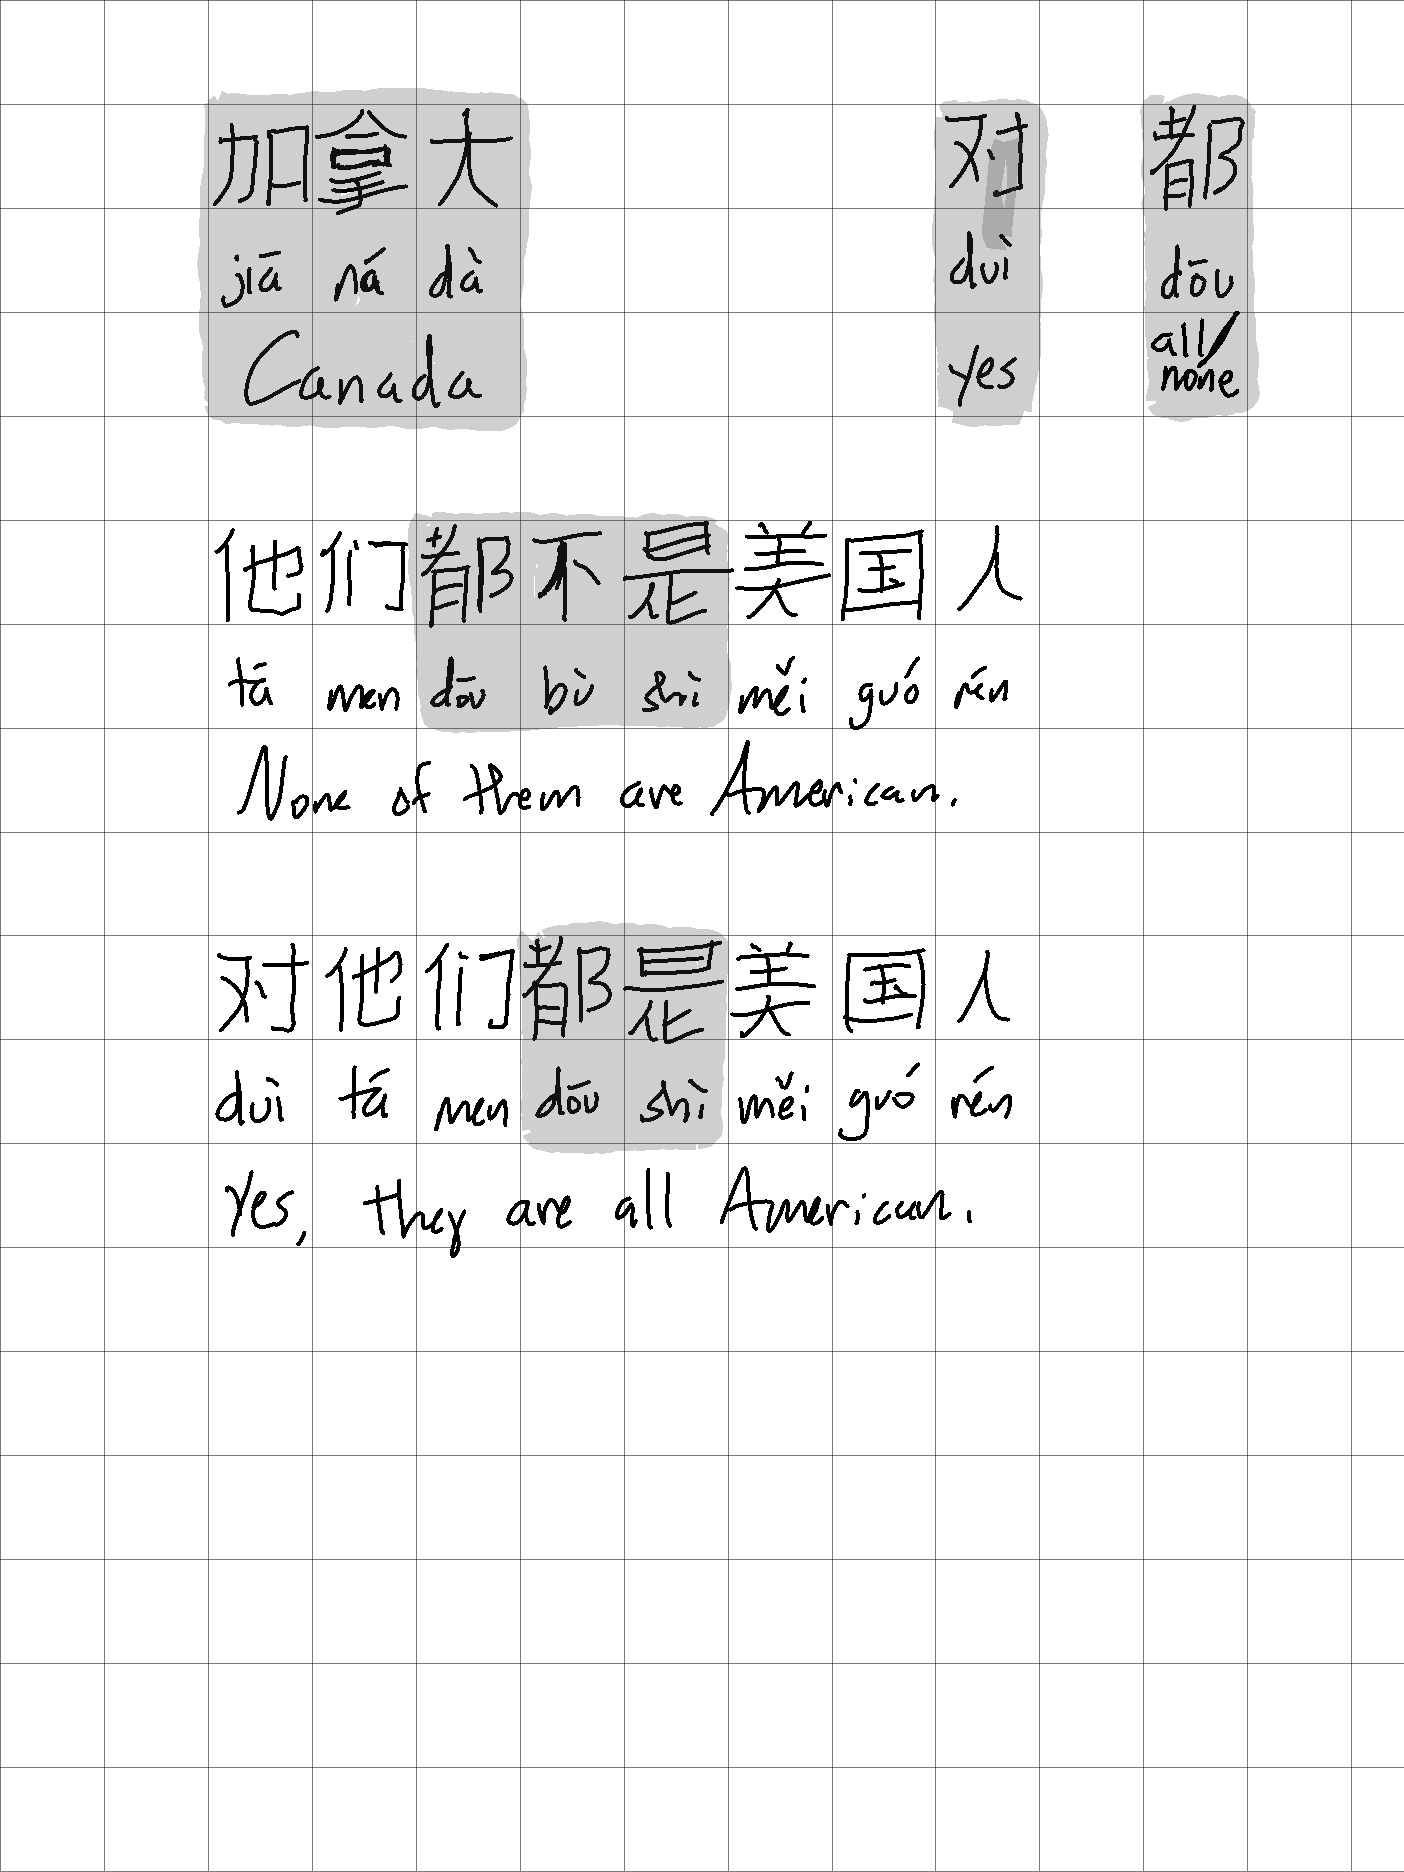 加拿大 对 都
jiā ná dà duì dōu
Canada yes all/
none
他们都不是美国人
tā men dōu bù shì měi guó rén
None of them are American.
对他们都是美国人
duì tā men dōu shì měi guó rén
Yes, they are all American.